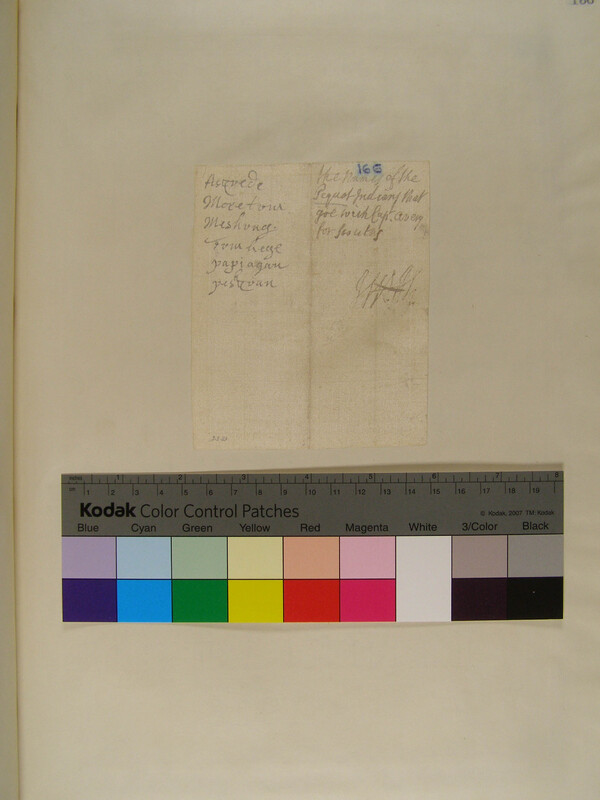 166
16
Moretown
Meshung
Tom liege
papiagan
pesuvan
the names of the
Pequot Indians that
goe with Cap:
for scouts
inches 1 2 3 4 5 6 7 8
cm 1 2 3 4 5 6 7 8 9 10 11 12 13 14 15 16 17 18 19
Kodak Color Control Patches
© Kodak, 2007 TM: Kodak
Blue Cyan Green Yellow Red Magenta White 3/Color Black